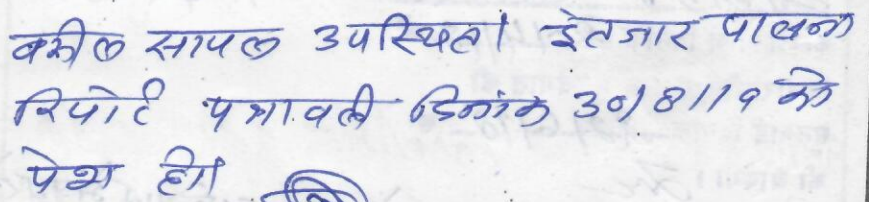 वकील सायल उपस्थित। इंतजार पालना
रिपोर्ट पत्रावली दिनांक 30/8/19 को
पेश हो।